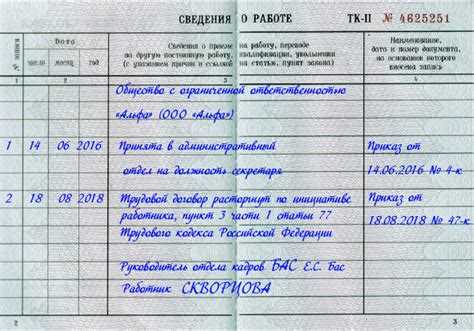 СВЕДЕНИЯ О РАБОТЕ
ТК-II № 4625251
№ записи
Дата
число
месяц
год
Сведения о приеме на работу, переводе
на другую постоянную работу, квалификации, увольнении
(с указанием причин и ссылкой на статью, пункт закона)
Наименование,
дата и номер документа,
на основании которого
внесена запись
1 2 3 4
Общество с ограниченной ответственностью
«Альфа» (ООО «Альфа»)
1 14 06 2016 Принята в административный Приказ от
отдел на должность секретаря 14.06.2016 № 4-к
2 18 08 2018 Трудовой договор расторгнут по инициативе Приказ от
работника, пункт 3 части 1 статьи 77 18.08.2018 № 47-к
Трудового кодекса Российской Федерации
Руководитель отдела кадров БАС Е.С. Бас
Работник СКВОРЦОВА
2 3